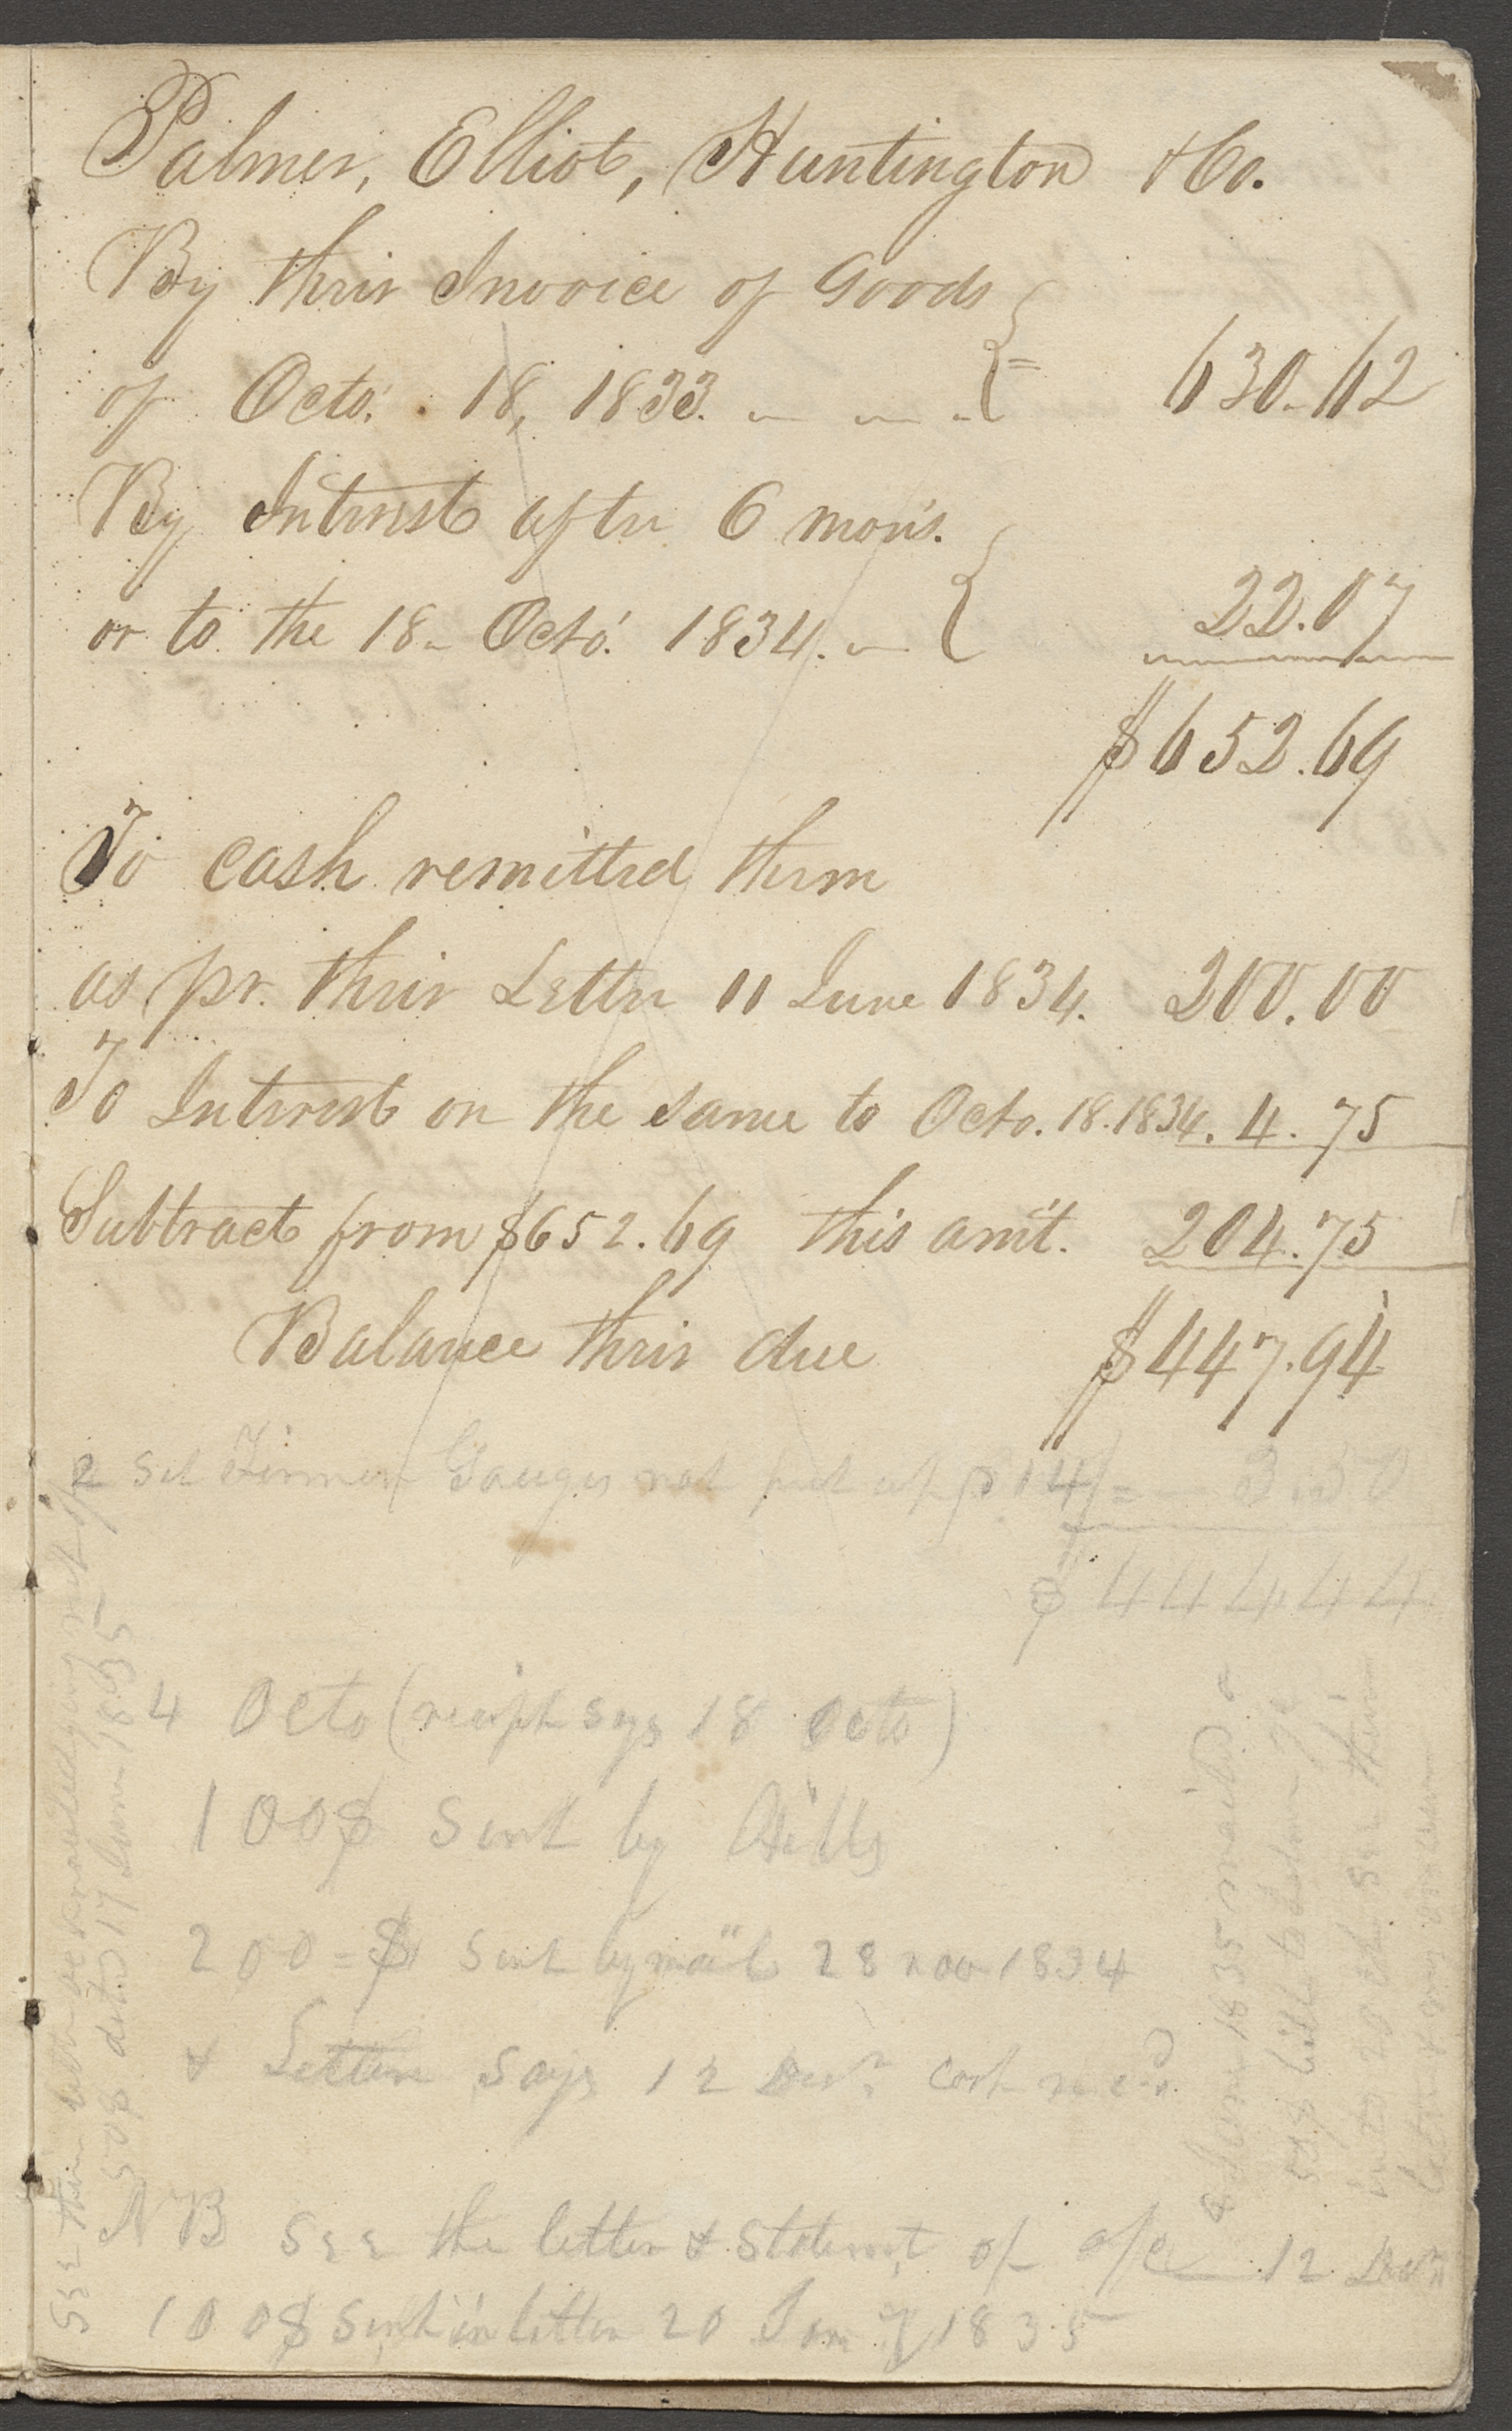 Palmer, Elliot, Huntington & Co.
By their Invoice of Goods
of Octo. 18, 1833. 630.62
By Interest after 6 mon's.
or to the 18 Octo. 1834. 22.07
$652.69
To cash remitted them
as pr. their Letter 11 June 1834. 200.00
To Interest on the same to Octo. 18. 1834. 4.75
Subtract from $652.69 this am't. 204.75
Balance their due $447.94
2 Set Firmer Gauges not put up 14/ = 3.50
$444.44
4 Octo (receipt says 18 Octo)
100$ Sent by Hills
200=$ Sent by mail 28 nov 1834
& Letter says 12 Decr. Cash recd.
NB See the letter & Statemt of a/c 12 Decr
100$ Sent in letter 20 Jany 1835
See their letter acknowledging rect of
50$ dated 17 June 1835
8 June 1835 mailed a
50$ bill to
20 See their
letter